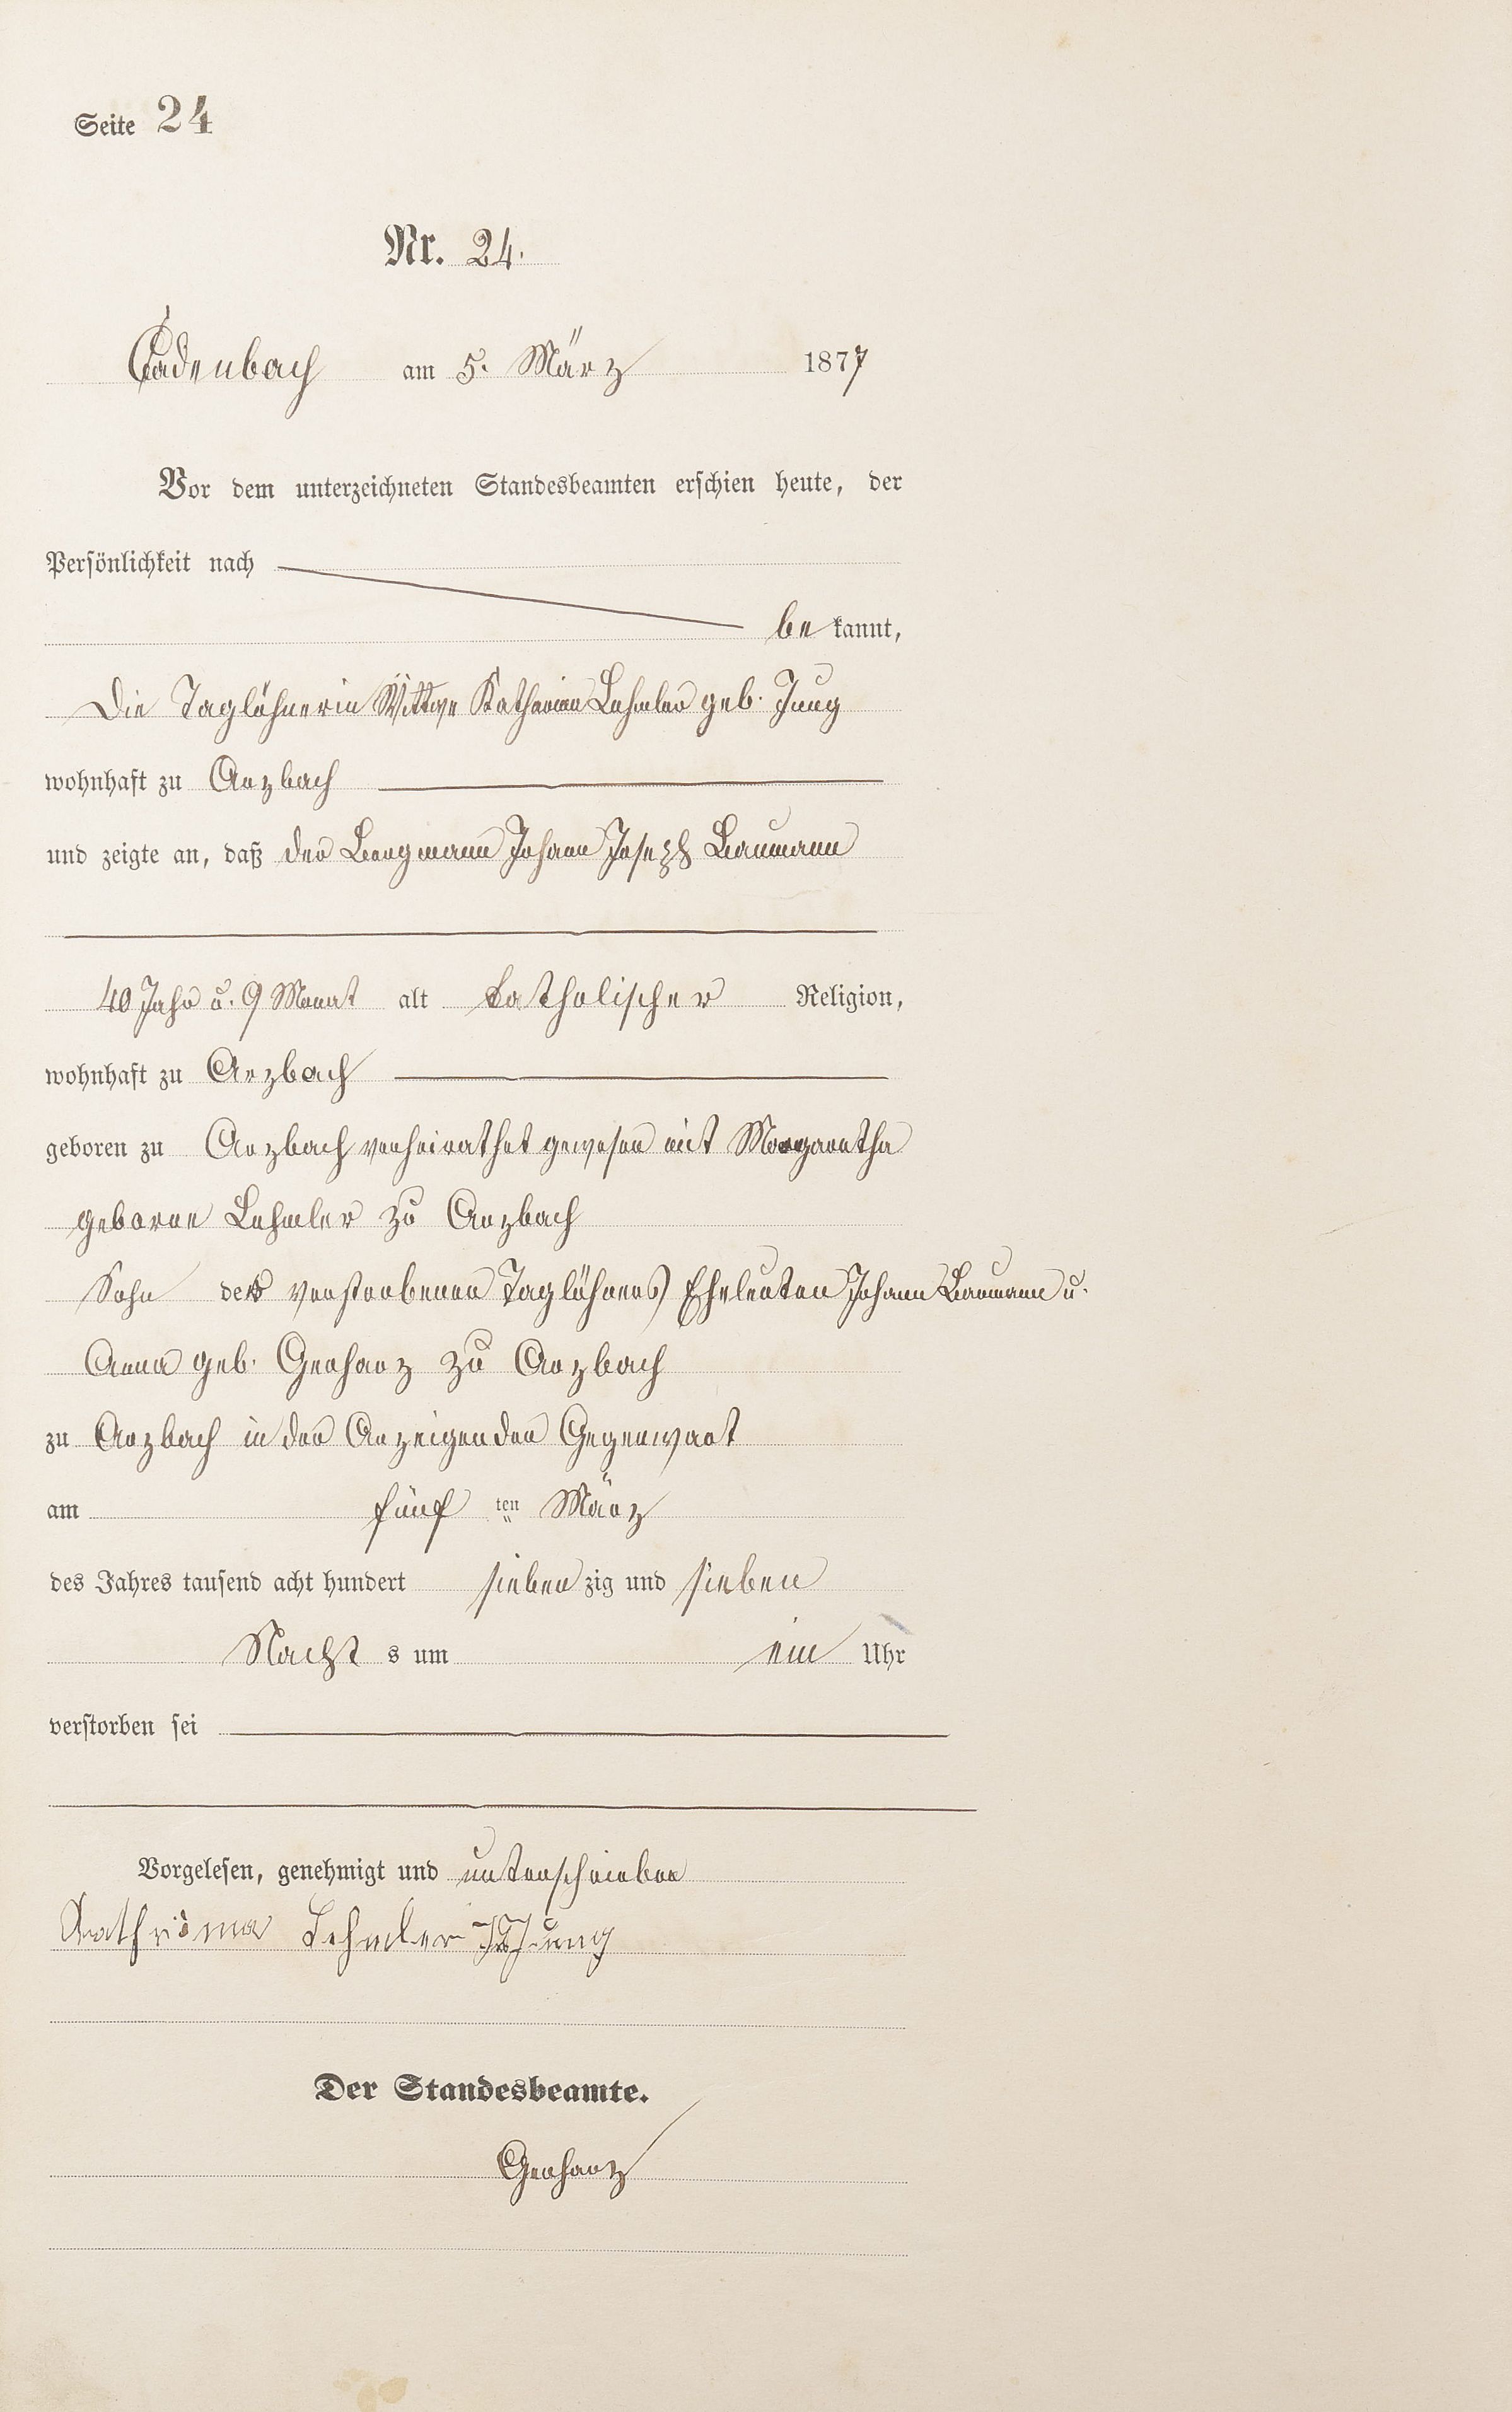 Seite 24
Nr. 24.
Cadenbach am 5. März 1877
Vor dem unterzeichneten Standesbeamten erschien heute, der
Persönlichkeit nach
be kannt,
Die Taglöhnerin Wittwe Katharina Lehmler geb. Jung
wohnhaft zu Arzbach
und zeigte an, daß der Bergmann Johann Joseph Baumann
40 Jahr u. 9 Monat alt katholischer Religion,
wohnhaft zu Arzbach
geboren zu Arzbach verheirathet gewesen mit Margaretha
geborne Lehmler zu Arzbach
Sohn der verstorbenen Taglöhners Eheleuten Johann Baumann u.
Anna geb. Gerharz zu Arzbach
zu Arzbach in der Anzeigenden Gegenwart
am fünf ten März
des Jahres tausend acht hundert sieben zig und sieben
Nacht s um ein Uhr
verstorben sei
Vorgelesen, genehmigt und unterschrieben
Kathrina Lehmler Jung
Der Standesbeamte.
Gerharz